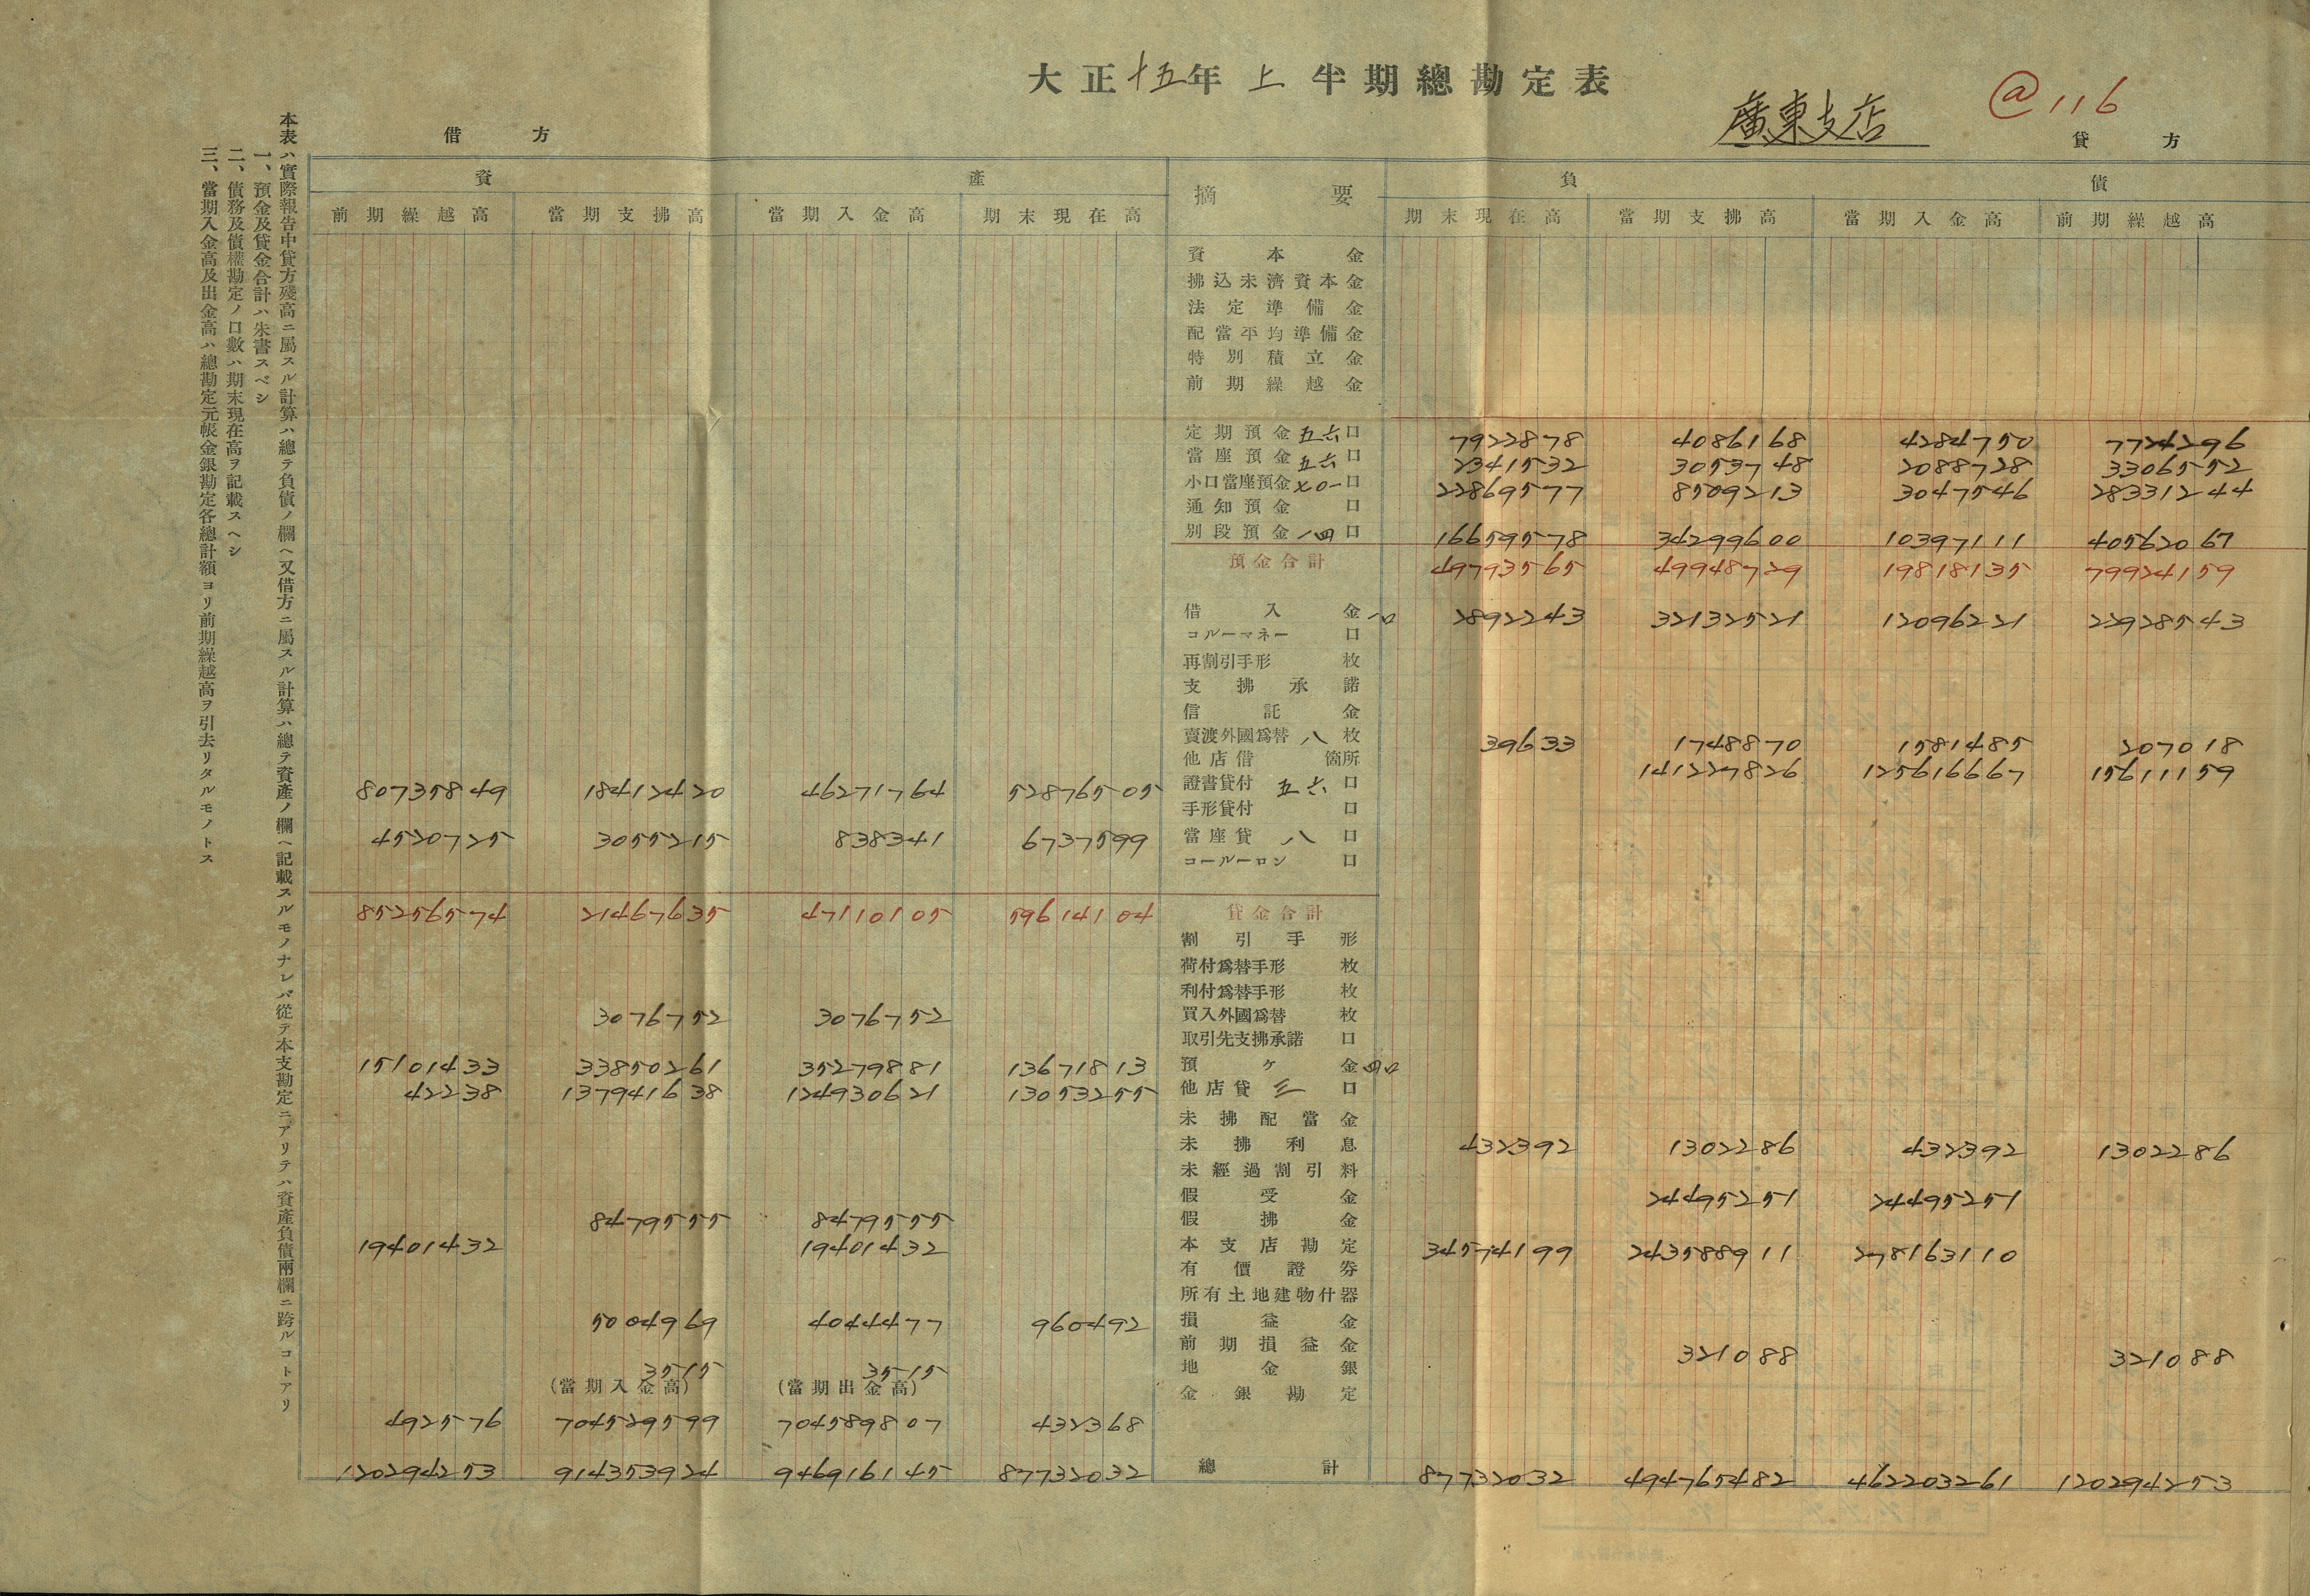 大正十五年上半期總勘定表
廣東支店
@116
借方
貸方
資產
摘要
負債
前期繰越高 當期支拂高 當期入金高 期末現在高 期末現在高 當期支拂高 當期入金高 前期繰越高
資本金
拂込未濟資本金
法定準備金
配當平均準備金
特別積立金
前期繰越金
定期預金 五六口 7922878 4086168 4284750 7724296
當座預金 五六口 2341532 3053748 2088728 3306552
小口當座預金 乄〇一口 22869577 8509213 3047546 28331244
通知預金 口
別段預金 一四口 16659578 34299600 10397111 40562067
預金合計 49793565 49948729 19818135 79924159
借入金 一口 2892243 32132521 12096221 22928543
コルーマネー 口
再割引手形 枚
支拂承諾
信託金
賣渡外國爲替 八枚 39633 1748870 1581485 207018
他店借 箇所 141227826 125616667 15611159
80735849 18412420 46271764 52876505 證書貸付 五六口
手形貸付 口
4520725 3055215 838341 6737599 當座貸 八口
コールーロン 口
85256574 21467635 47110105 59614104 貸金合計
割引手形
荷付爲替手形 枚
利付爲替手形 枚
3076752 3076752 買入外國爲替 枚
取引先支拂承諾 口
15101433 33850261 35279881 13671813 預ケ金 四口
42238 137941638 124930621 13053255 他店貸 三口
未拂配當金
未拂利息 432392 1302286 432392 1302286
未經過割引料
假受金 24495251 24495251
8479555 8479555 假拂金
19401432 19401432 本支店勘定 34574199 243588911 278163110
有價證券
所有土地建物什器
5004969 4044477 960492 損益金
前期損益金 321088 321088
3515 3515 地金銀
(當期入金高) (當期出金高)
金銀勘定
492576 704529599 704589807 432368
120294253 914353924 946916145 87732032 總計 87732032 494765482 462203261 120294253
本表ハ實際報告中貸方殘高ニ屬スル計算ハ總テ負債ノ欄ヘ又借方ニ屬スル計算ハ總テ資產ノ欄ヘ記載スルモノナレバ從テ本支勘定ニアリテハ資產負債兩欄ニ跨ルコトアリ
一、預金及貸金合計ハ朱書スベシ
二、債務及債權勘定ノ口數ハ期末現在高ヲ記載スヘシ
三、當期入金高及出金高ハ總勘定元帳金銀勘定各總計額ヨリ前期繰越高ヲ引去リタルモノトス